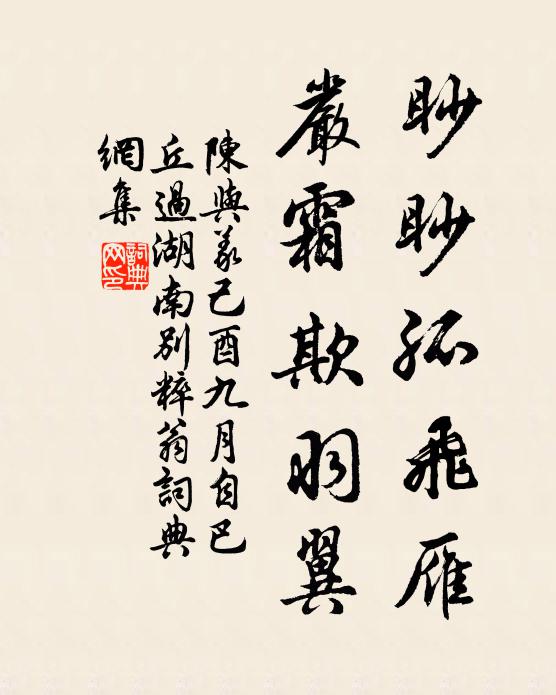 眇眇孤飛雁
嚴霜欺羽翼
陳與義己酉九月自巴
丘過湖南別粹翁詞典
網集
詞典
网印